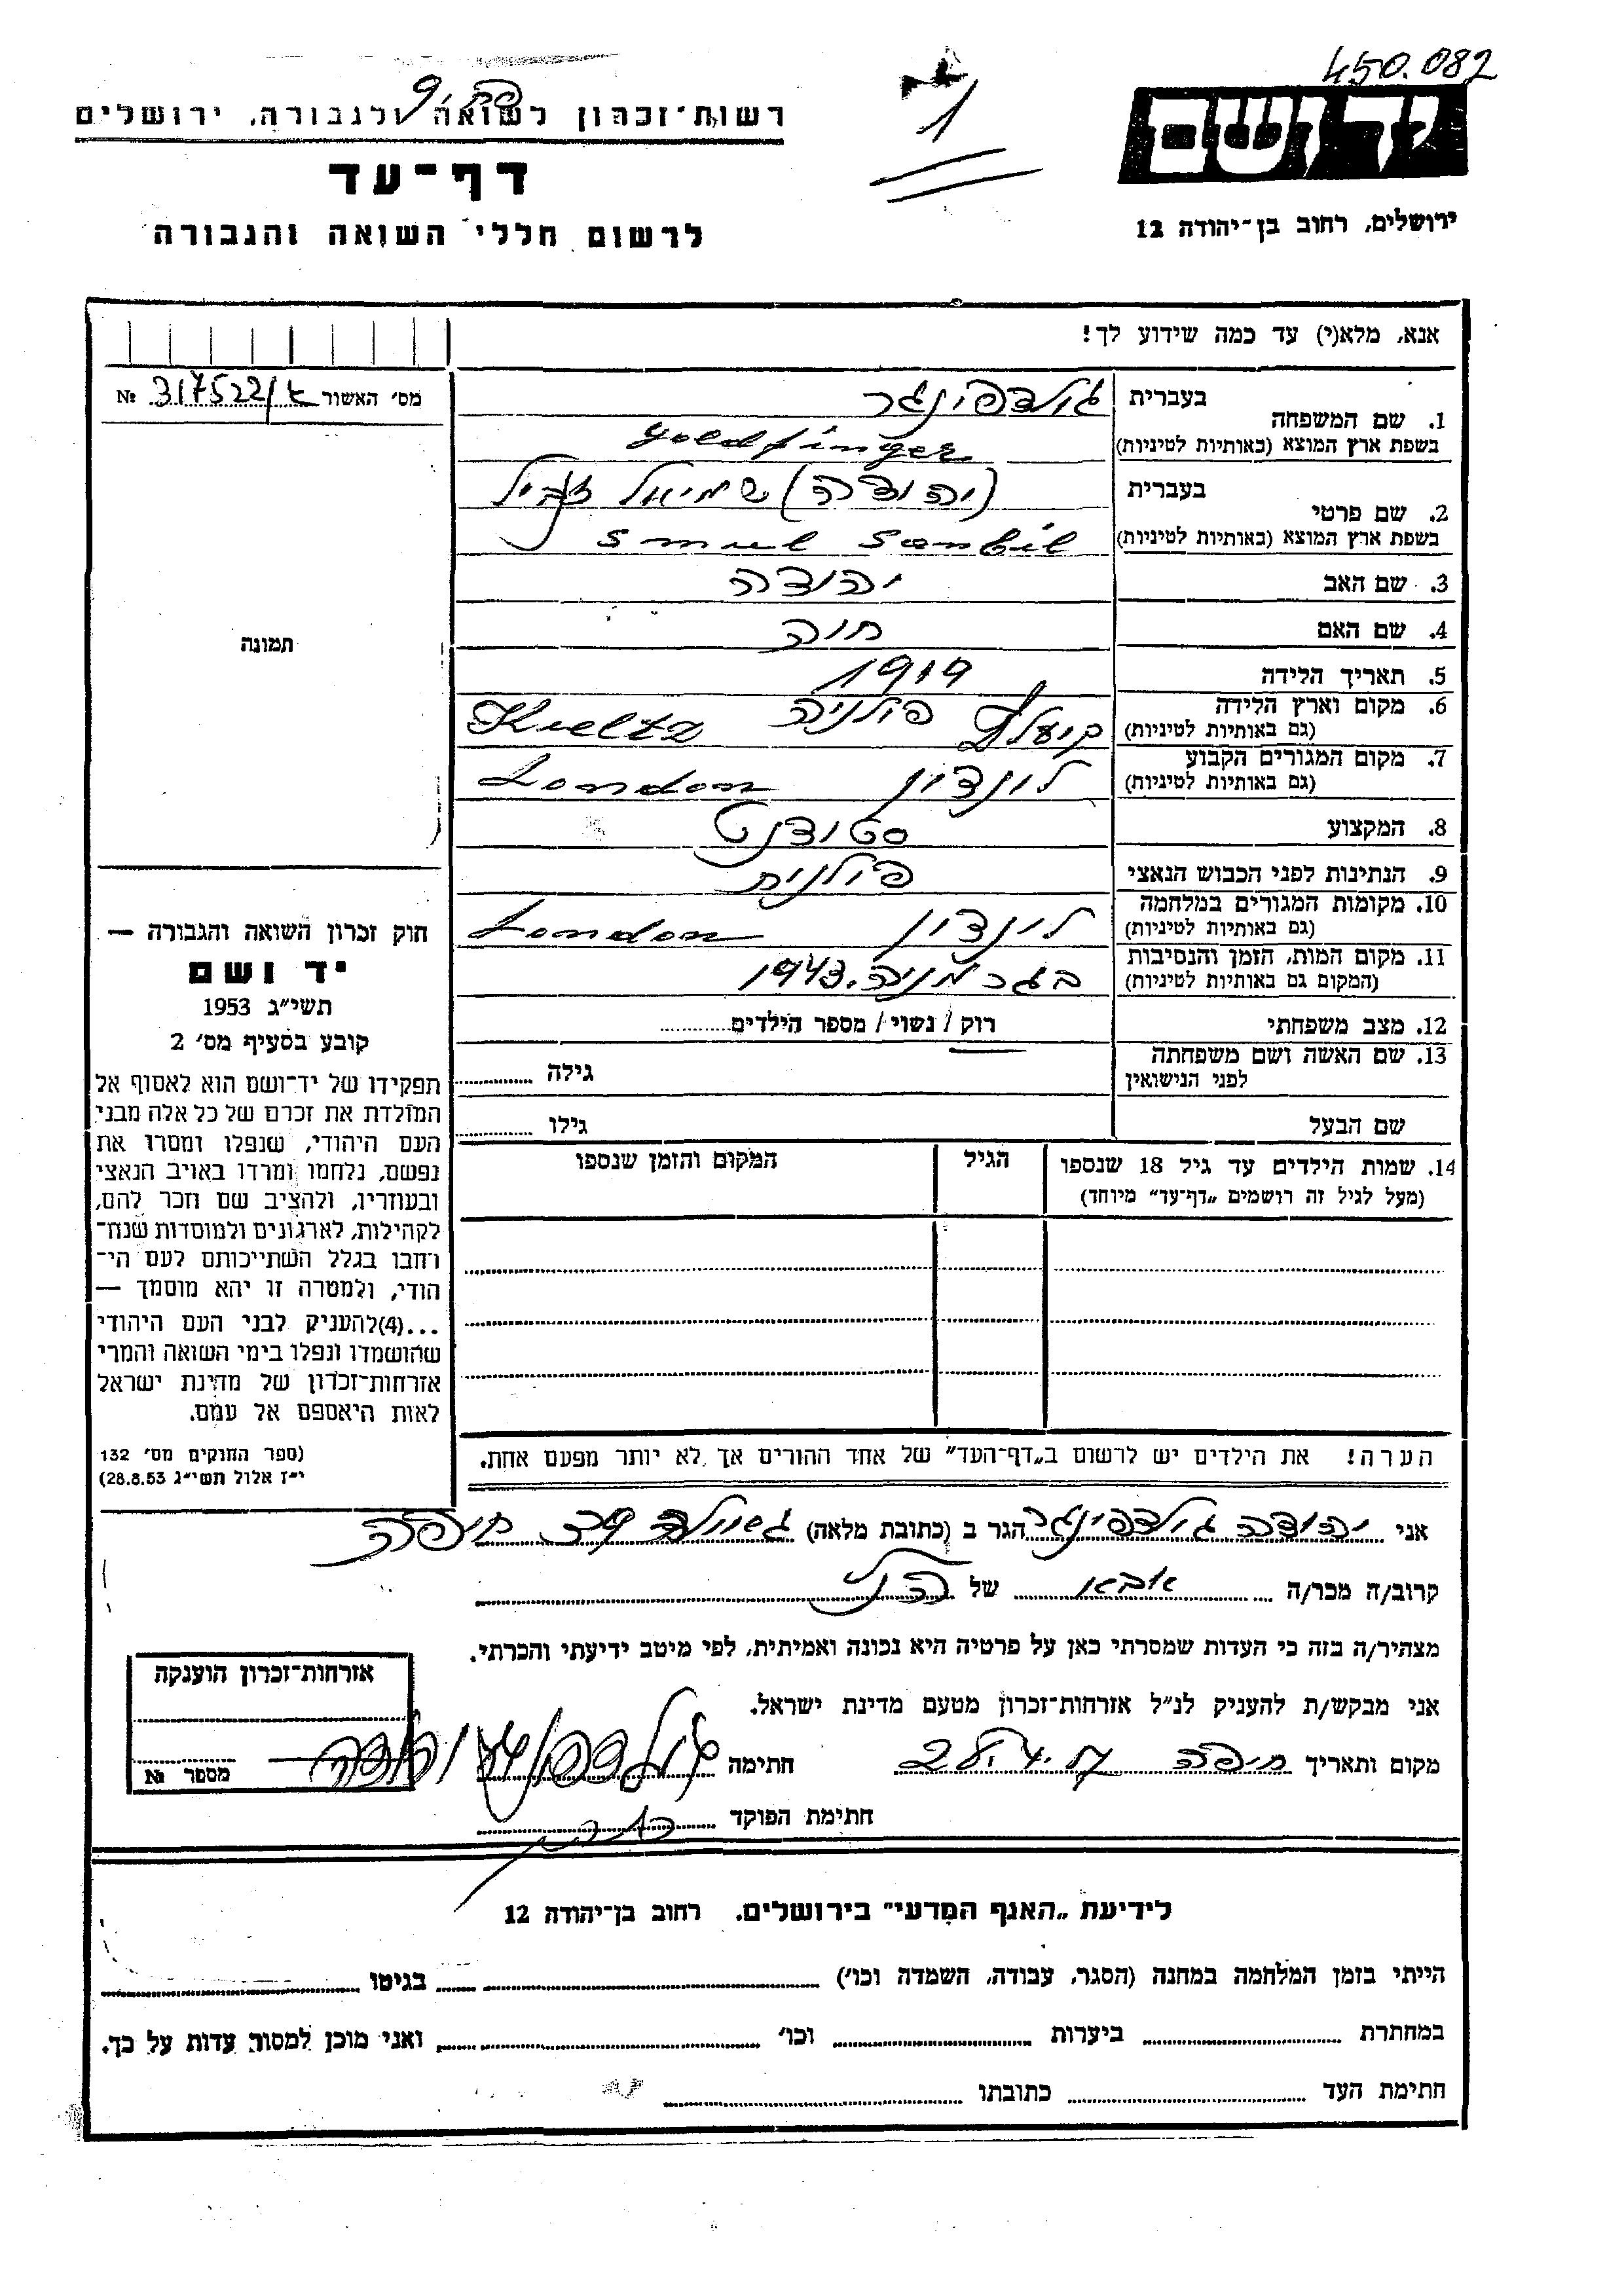 450.082
יד ושם
ירושלים, רחוב בן־יהודה 12
1
רשות־זכרון לשואה ולגבורה, ירושלים
דף־עד
לרשום חללי השואה והגבורה
אנא, מלא(י) עד כמה שידוע לך!
מס' האשור 317522/א №
תמונה
1. שם המשפחה בעברית גולדפינגר
בשפת ארץ המוצא (באותיות לטיניות) Goldfinger
2. שם פרטי בעברית (יהודה) שמיאל זנביל
בשפת ארץ המוצא (באותיות לטיניות) Smuel Sanbil
3. שם האב יהודה
4. שם האם חוה
5. תאריך הלידה 1919
6. מקום וארץ הלידה (גם באותיות לטיניות) פולניה Kieltz
7. מקום המגורים הקבוע (גם באותיות לטיניות) לונדון London
8. המקצוע סטודנט
9. הנתינות לפני הכבוש הנאצי פולנית
10. מקומות המגורים במלחמה (גם באותיות לטיניות) לונדון London
11. מקום המות, הזמן והנסיבות (המקום גם באותיות לטיניות) בגרמניה. 1943
12. מצב משפחתי רוק / נשוי / מספר הילדים
13. שם האשה ושם משפחתה לפני הנישואין גילה
שם הבעל גילו
14. שמות הילדים עד גיל 18 שנספו (מעל לגיל זה רושמים „דף־עד" מיוחד) הגיל המקום והזמן שנספו
הערה! את הילדים יש לרשום ב„דף־העד" של אחד ההורים אך לא יותר מפעם אחת.
חוק זכרון השואה והגבורה —
יד ושם
תשי"ג 1953
קובע בסעיף מס' 2
תפקידו של יד־ושם הוא לאסוף אל
המולדת את זכרם של כל אלה מבני
העם היהודי, שנפלו ומסרו את
נפשם, נלחמו ומרדו באויב הנאצי
ובעוזריו, ולהציב שם וזכר להם,
לקהילות, לארגונים ולמוסדות שנח־
רחבו בגלל השתייכותם לעם הי־
הודי, ולמטרה זו יהא מוסמך —
...(4)להעניק לבני העם היהודי
שהושמדו ונפלו בימי השואה והמרי
אזרחות־זכרון של מדינת ישראל
לאות היאספם אל עמם.
(ספר החוקים מס' 132
י"ז אלול תשי"ג 28.8.53)
אני יהודה גולדפינגר הגר ב (כתובת מלאה) חיפה
קרוב/ה מכר/ה אבא של הנ"ל
מצהיר/ה בזה כי העדות שמסרתי כאן על פרטיה היא נכונה ואמיתית, לפי מיטב ידיעתי והכרתי.
אני מבקש/ת להעניק לנ"ל אזרחות־זכרון מטעם מדינת ישראל.
מקום ותאריך חיפה חתימה גולדפינגר יהודה
חתימת הפוקד
אזרחות־זכרון הוענקה
מספר №
לידיעת „האגף המדעי" בירושלים. רחוב בן־יהודה 12
הייתי בזמן המלחמה במחנה (הסגר, עבודה, השמדה וכו') בגיטו
במחתרת ביערות וכו' ואני מוכן למסור עדות על כך.
חתימת העד כתובתו